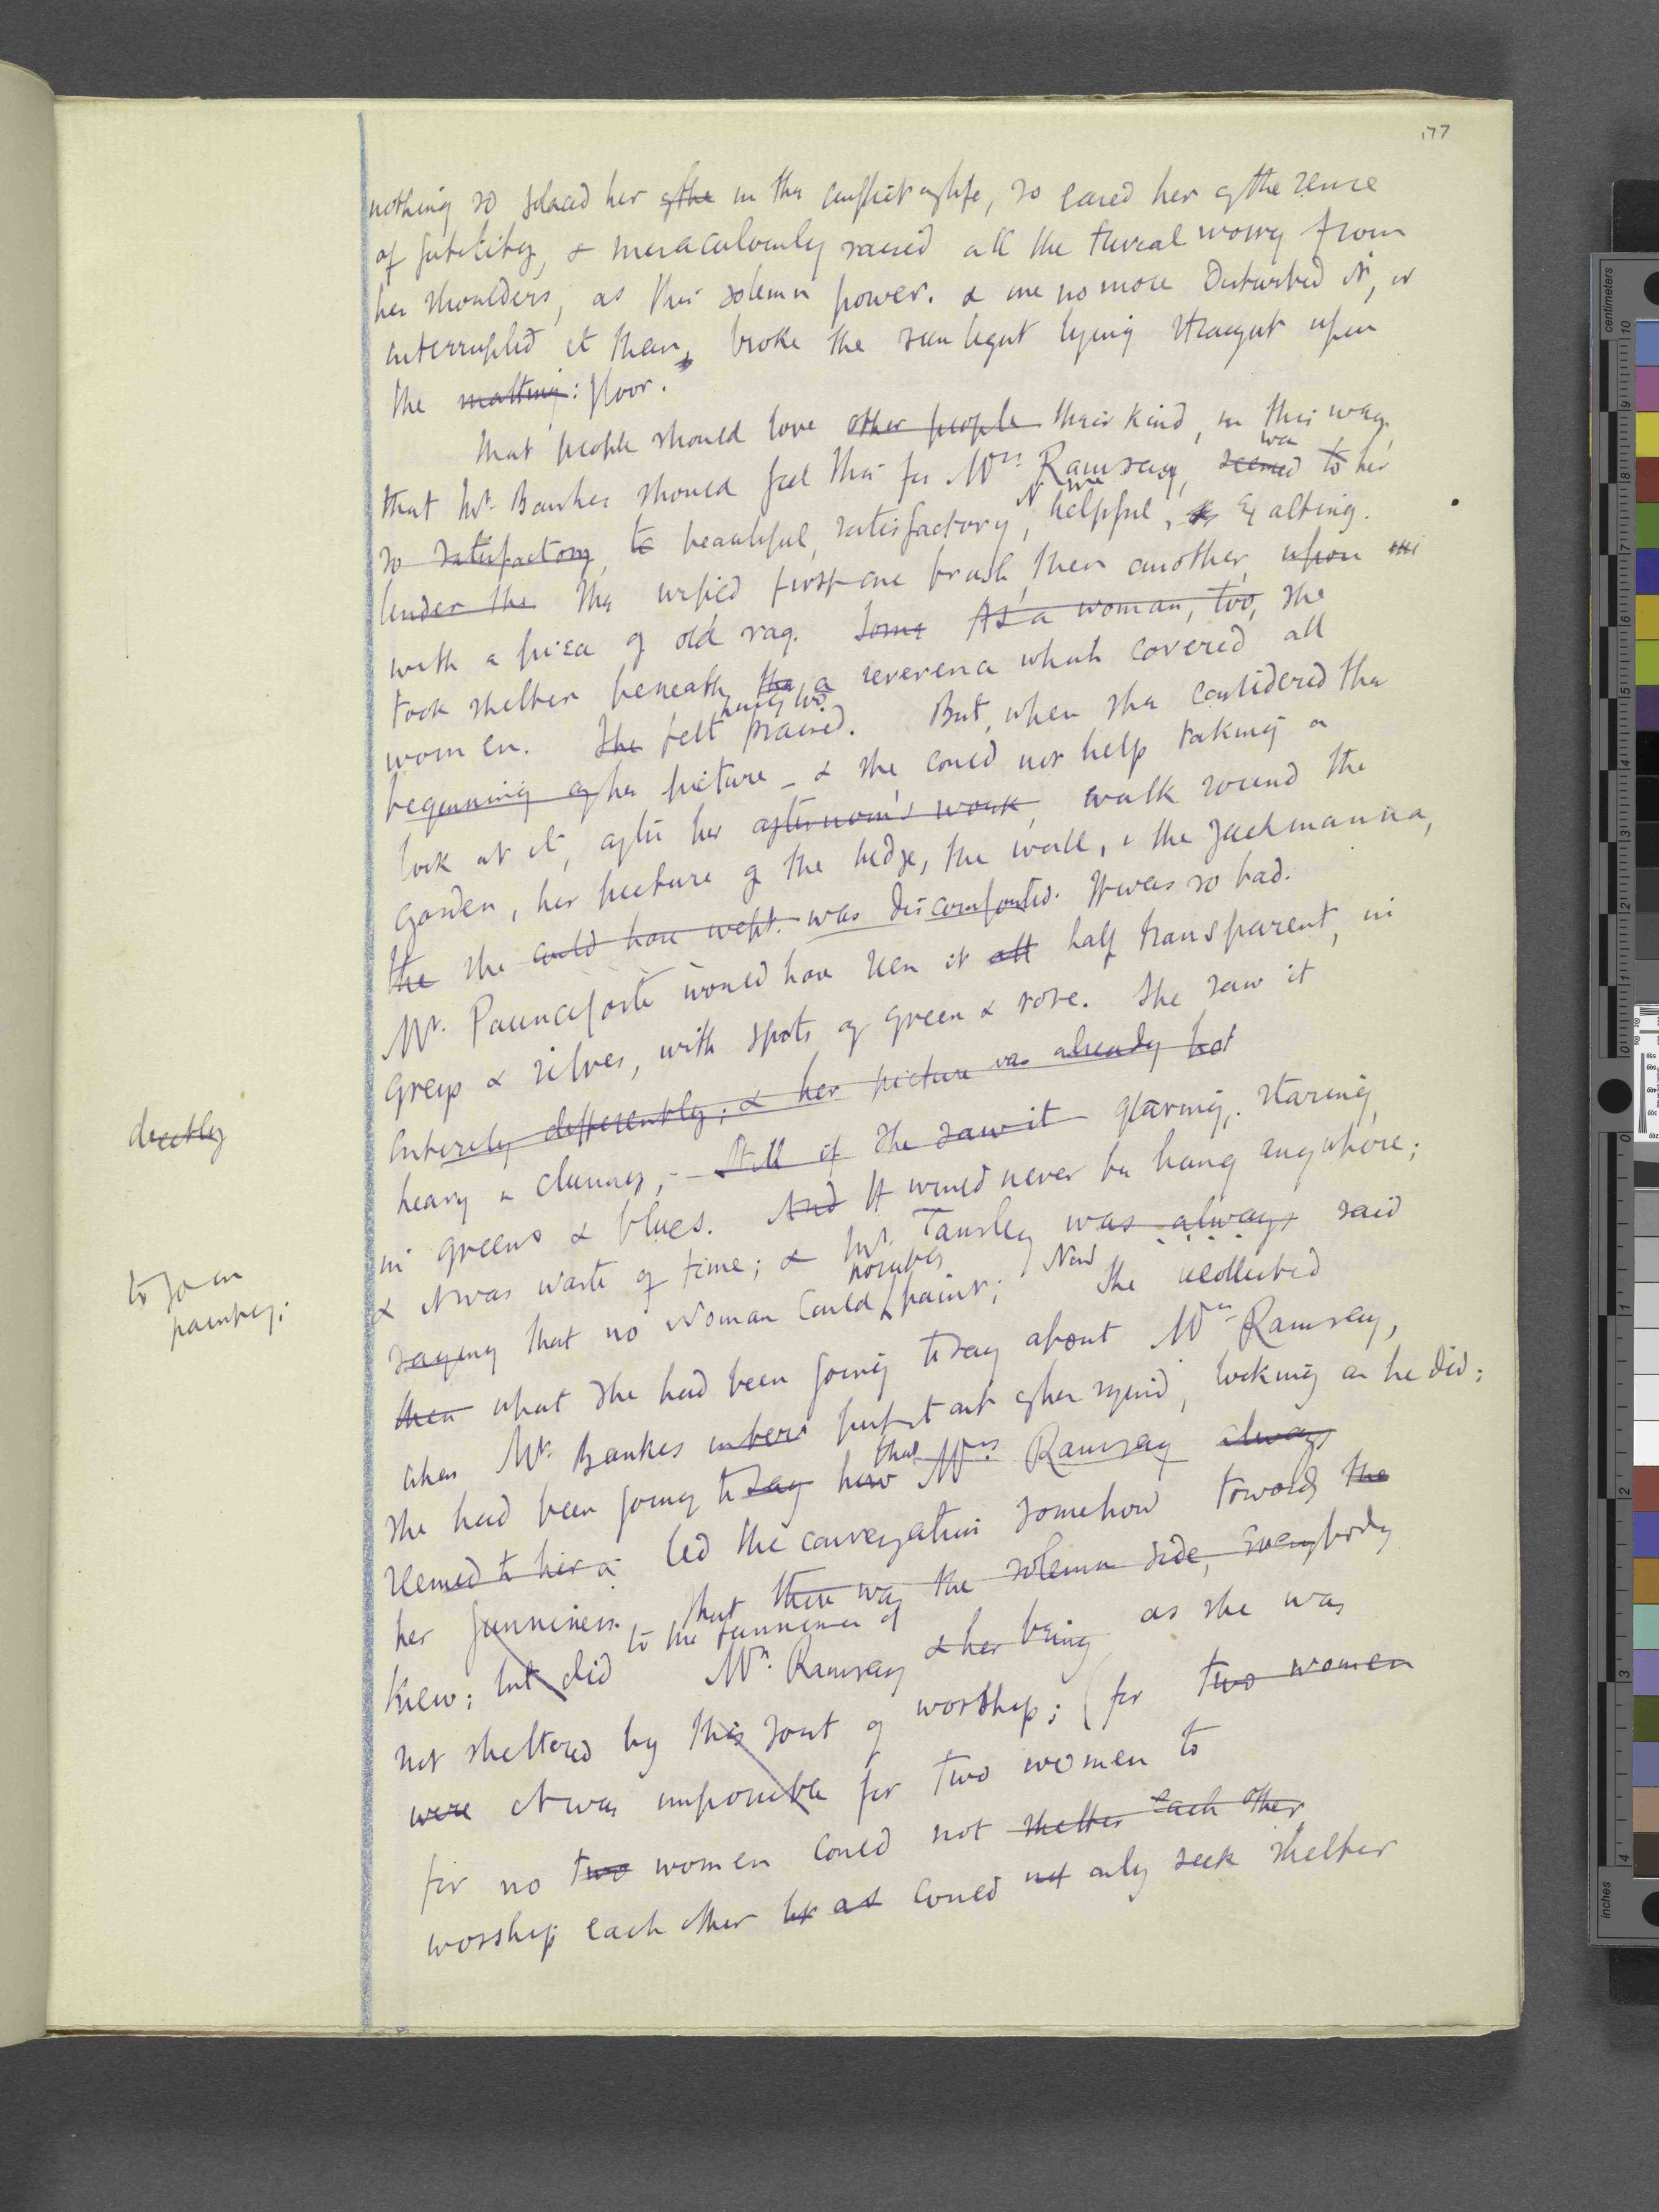 177
nothing so solaced her of the in the conflict of life, so eased her of the sense
of futility, & miraculously raised all the trivial worry from
her shoulders, as this solemn power. & one no more disturbed it, or
interrupted it than, broke the sun light lying straight upon
the matting: floor.
That people should love other people their kind, in this way,
was
that Mr. Bankes should feel this for Mrs. Ramsay, seemed to her
so satisfactory, to beautiful, satisfactory, helpful, exalting.
Under the She wiped first one brush, then another, upon
with a piece of old rag. Some As a woman, too, she
took shelter beneath the a reverence which covered all
women. She felt praised. But, when she considered the
beginning of her picture - & she could not help taking a
look at it, after her afternoon's work, walk round the
garden, her picture of the hedge, the wall, & the Jackmanna,
the she could have wept. was discomforted. It was so bad.
Mr. Paunceforte would have seen it all half transparent, in
greys & silver, with spots of green & rose. She saw it
directly
Entirely differently; & her picture was already hot
heavy & clumsy, - Still if she saw it glaring, staring,
in greens & blues. And It would never be hung anywhere;
to go on
painting:
& it was waste of time; & Mr. Tansley was always said
saying that no woman could paint; Now she recollected
then what she had been going to say about Mrs. Ramsay,
when Mr. Bankes put it out of her mind, looking as he did;
that
she had been going to say how Mrs Ramsay always
seemed to her a led the conversation somehow towards the
her funniness. that there was the solemn side, everybody
to the funniness of
knew; but did Mrs. Ramsay & her being as she was
not sheltered by this sort of worship; (for two women
were it was impossible for two women to
for no two women could not shelter each other
worship each other as could not only seek shelter